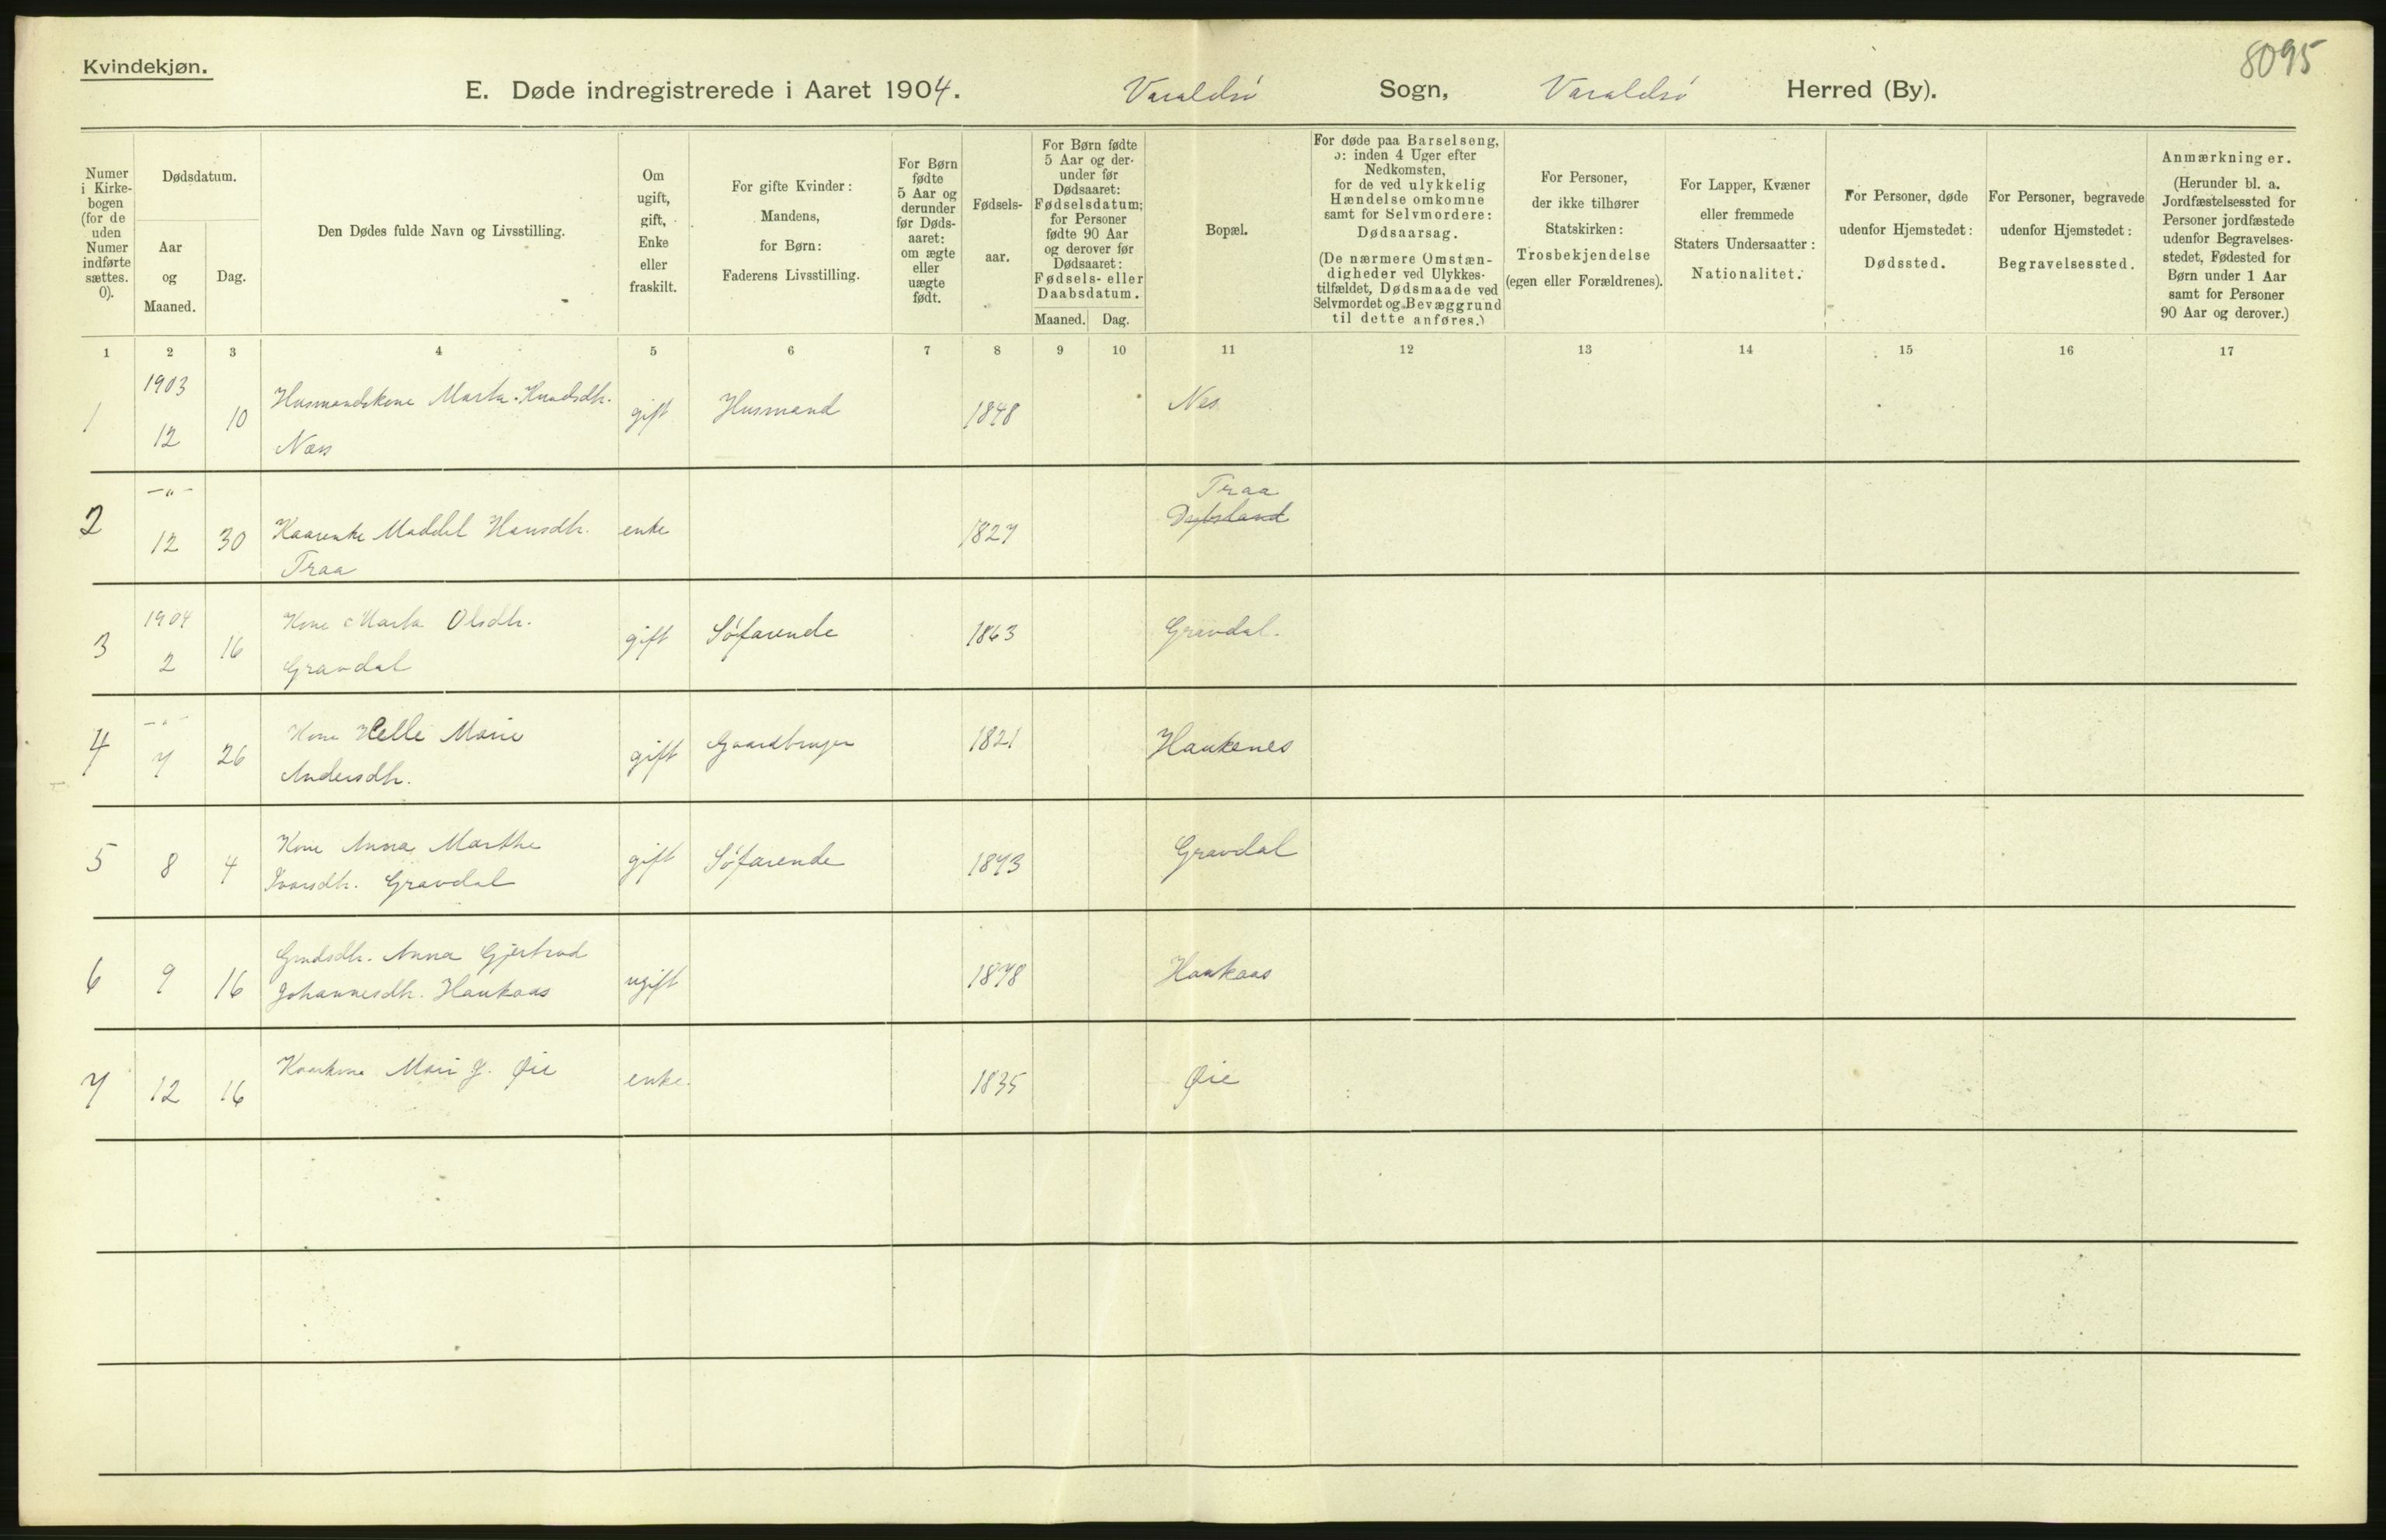 8095
Kvindekjøn.
E. Døde indregistrerede i Aaret 1904. Varaldsö Sogn, Varaldsö Herred (By).
Numer i Kirkebogen (for de uden Numer indførte sættes. 0).
Dødsdatum.
Aar og Maaned.
Dag.
Den Dødes fulde Navn og Livsstilling.
Om ugift, gift, Enke eller fraskilt.
For gifte Kvinder: Mandens, for Børn: Faderens Livsstilling.
For Børn fødte 5 Aar og derunder før Dødsaaret: om ægte eller uægte født.
Fødselsaar.
For Børn fødte 5 Aar og derunder før Dødsaaret: Fødselsdatum; for Personer fødte 90 Aar og derover før Dødsaaret: Fødsels- eller Daabsdatum.
Maaned. Dag.
Bopæl.
For døde paa Barselseng, ɔ: inden 4 Uger efter Nedkomsten, for de ved ulykkelig Hændelse omkomne samt for Selvmordere: Dødsaarsag.
(De nærmere Omstændigheder ved Ulykkestilfældet, Dødsmaade ved Selvmordet og Bevæggrund til dette anføres.)
For Personer, der ikke tilhører Statskirken: Trosbekjendelse (egen eller Forældrenes).
For Lapper, Kvæner eller fremmede Staters Undersaatter: Nationalitet.
For Personer, døde udenfor Hjemstedet: Dødssted.
For Personer, begravede udenfor Hjemstedet: Begravelsessted.
Anmærkninger.
(Herunder bl. a. Jordfæstelsessted for Personer jordfæstede udenfor Begravelsesstedet, Fødested for Børn under 1 Aar samt for Personer 90 Aar og derover.)
1 2 3 4 5 6 7 8 9 10 11 12 13 14 15 16 17
1 1903 12 10 Husmandskone Marta Knudsdtr. Næs gift Husmand 1848 Nes
2 —"— 12 30 Kaarenke Maddel Hansdtr. Traa enke 1827 Traa
3 1904 2 16 Kone Marta Olsdtr. Gravdal gift Söfarende 1863 Gravdal.
4 —"— 7 26 Kone Helle Marie Andersdtr. gift Gaardbruger 1821 Haukenes
5 8 4 Kone Anna Marthe Ivarsdtr. Gravdal gift Söfarende 1873 Gravdal
6 9 16 Grdsdtr. Anna Gjertrud Johannesdtr. Haukaas ugift 1878 Haukaas
7 12 16 Mari J. Øie enke. 1835 Øie